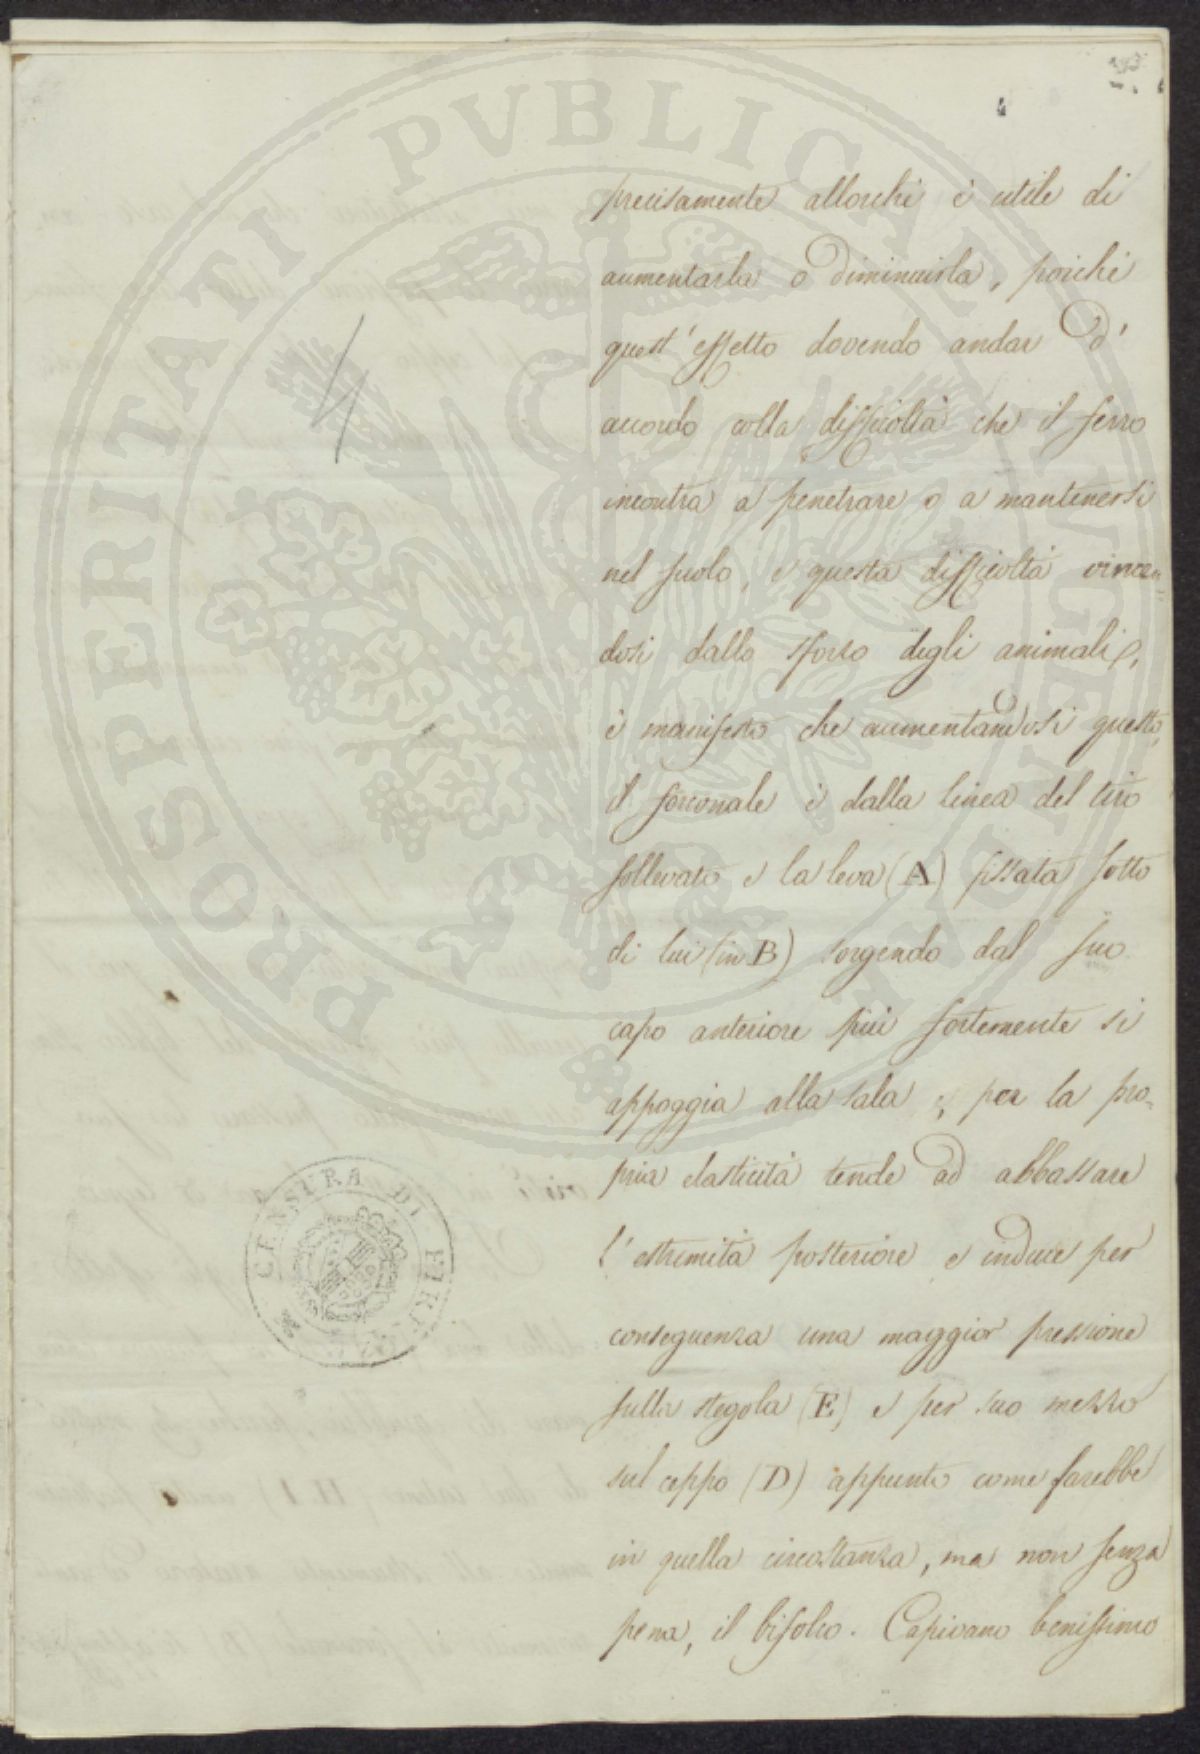 4
precisamente allorchè è utile di
aumentarla o diminuirla, poichè
quest'effetto dovendo andar d'
accordo colla difficoltà che il ferro
incontra a penetrare o a mantenersi
nel suolo, e questa difficoltà vincen=
dosi dallo sforzo degli animali,
è manifesto che aumentandosi questo,
il forconale è dalla linea del tiro
sollevato e la leva (A) fissata sotto
di lui (in B) sorgendo dal suo
capo anteriore più fortemente si
appoggia alla sala e, per la pro=
pria elasticità tende ad abbassare
l'estremità posteriore e induce per
conseguenza una maggior pressione
sulla stegola (E) e per suo mezzo
sul ceppo (D) appunto come farebbe
in quella circostanza, ma non senza
pena, il bifolco. Capivano benissimo
4
CENSURA DI FIRENZE
PROSPERITATI PVBLICAE AVGENDAE